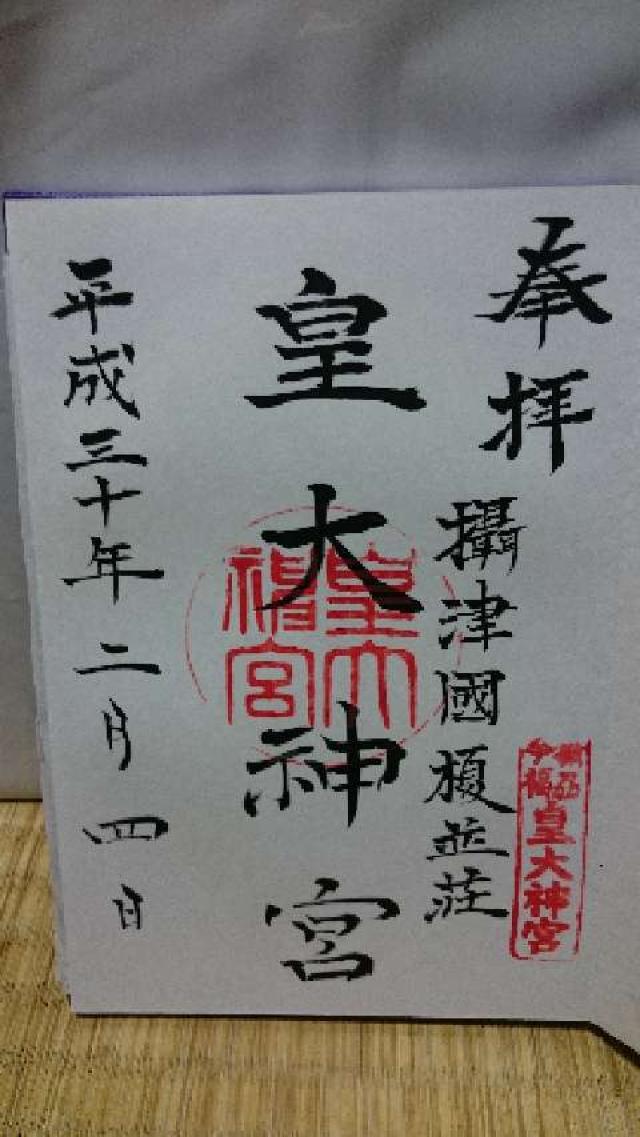 奉拝
攝津國榎並荘
皇大神宮
平成三十年二月四日
皇大神宮
今福
皇大神宮